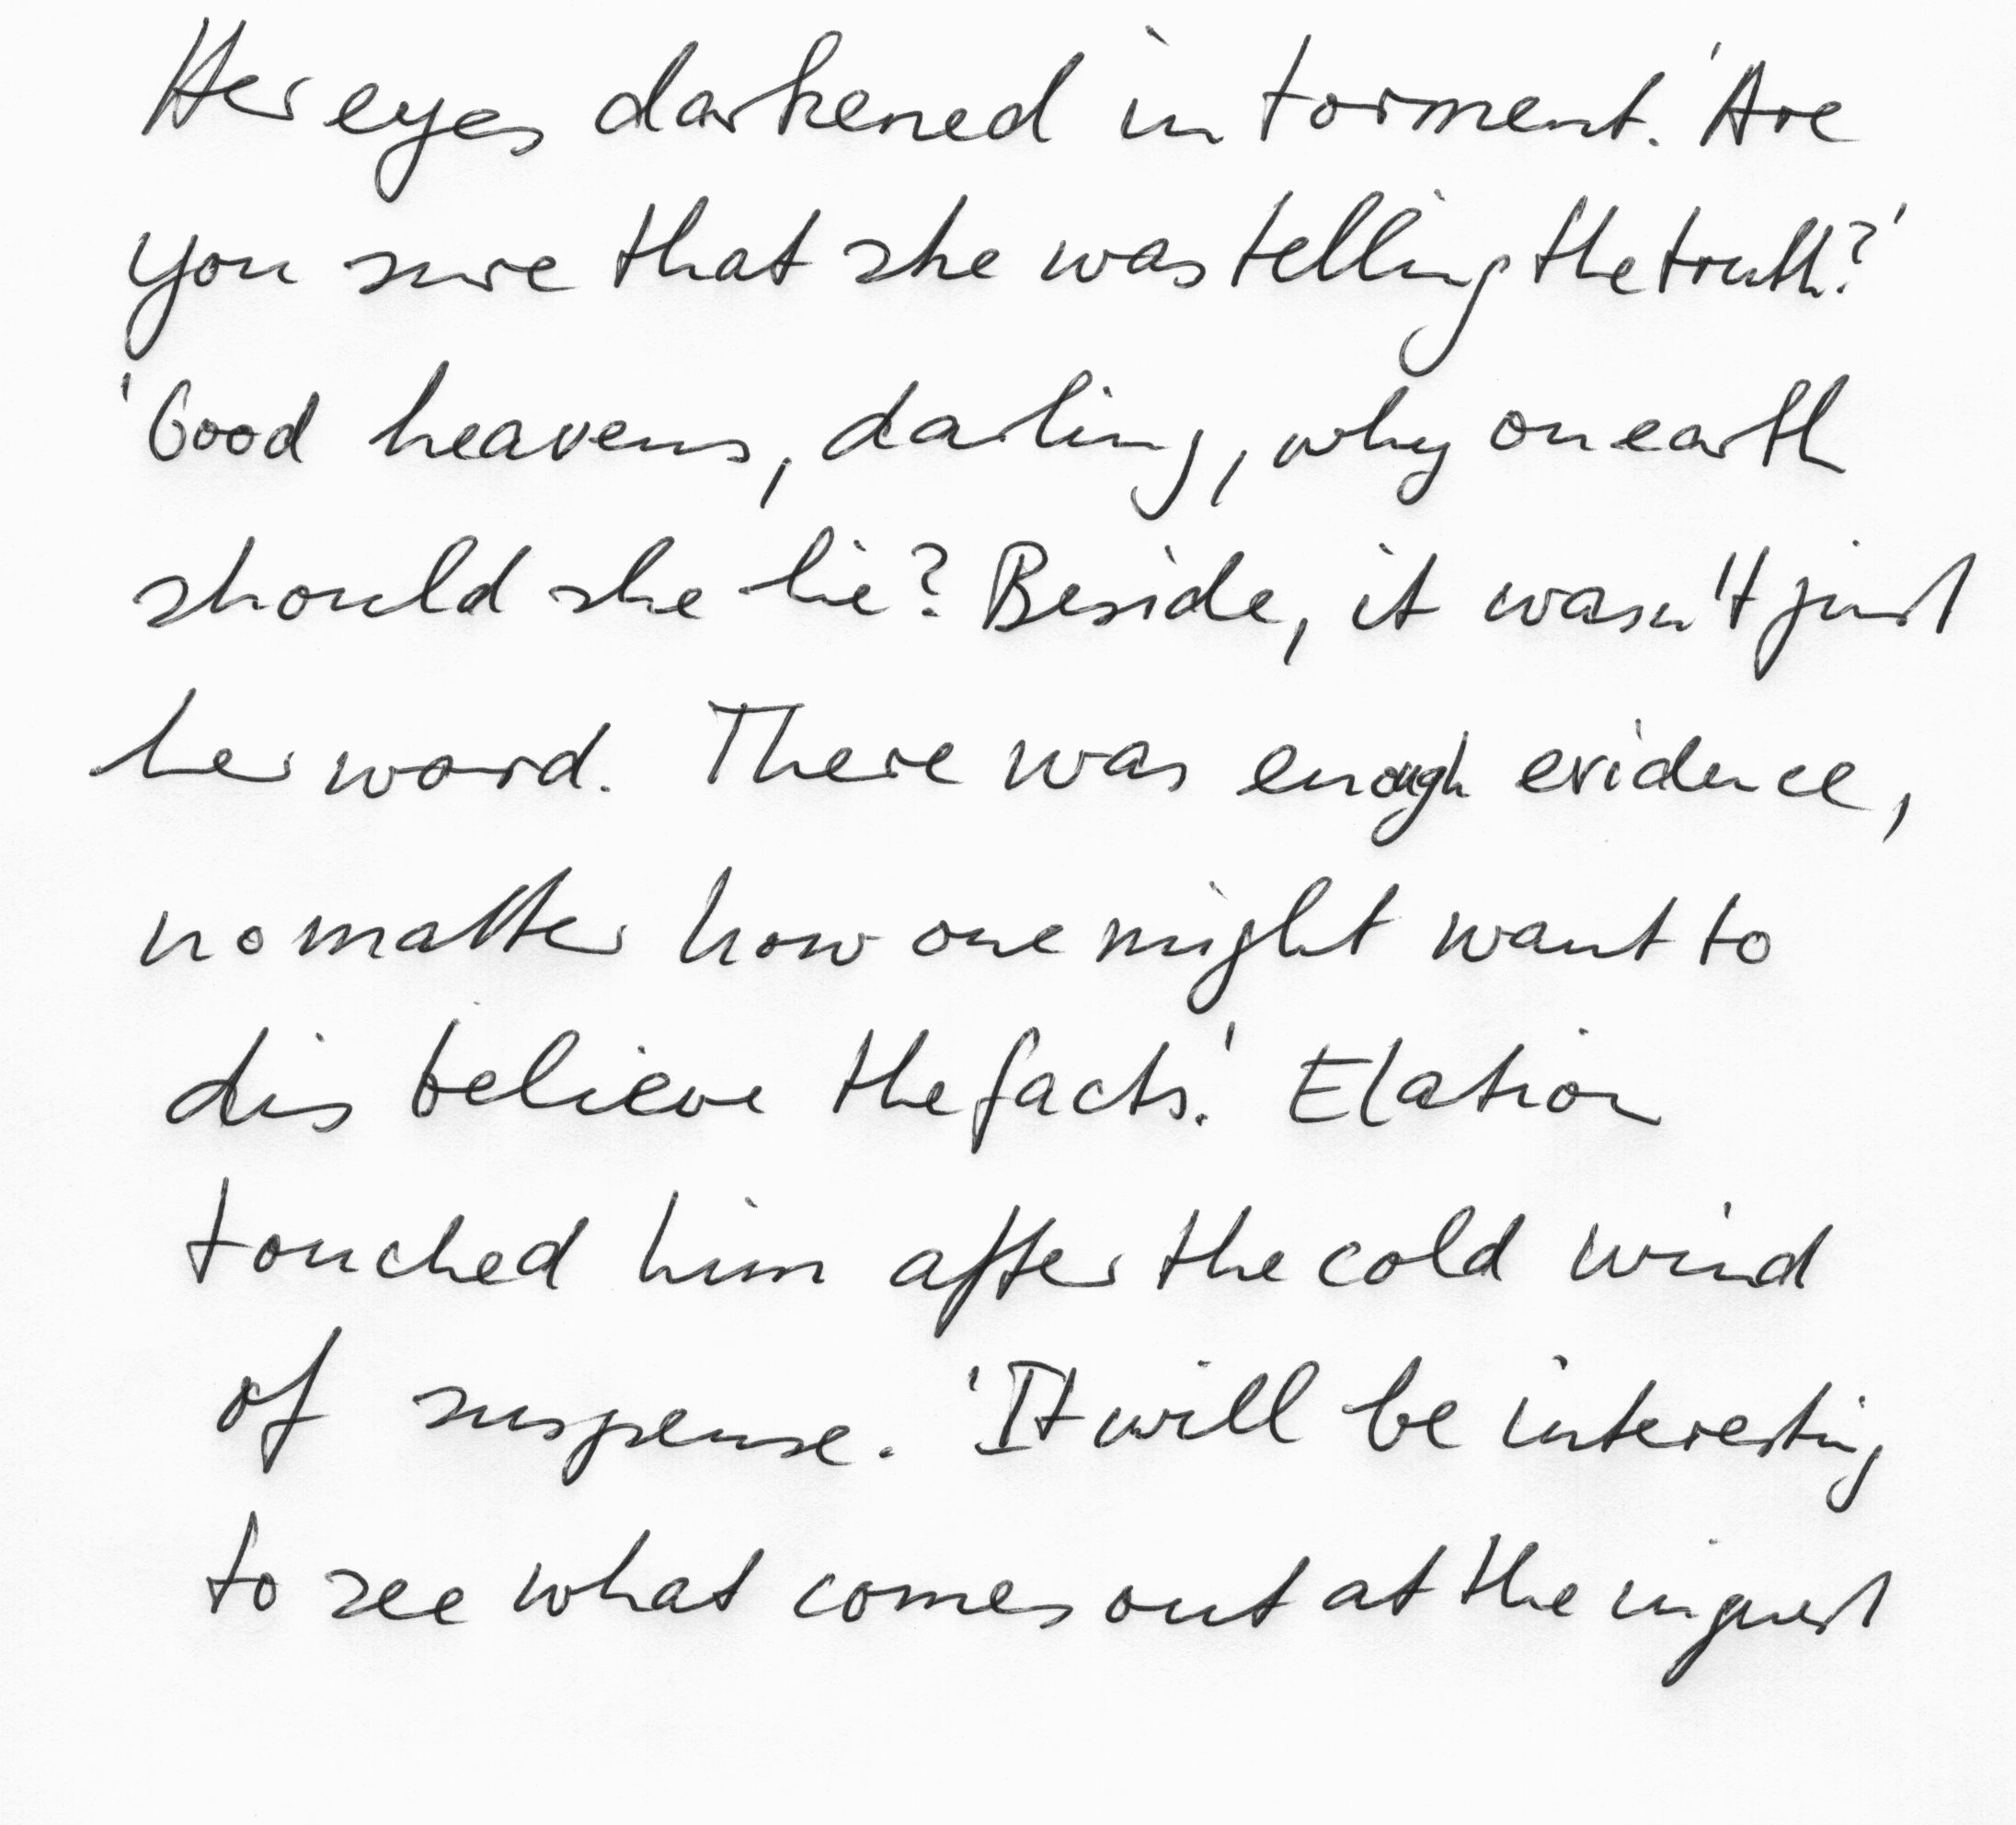 Her eyes darkened in torment. 'Are
you sure that she was telling the truth?'
'Good heavens, darling, why on earth
should she lie? Beside, it wasn't just
her word. There was enough evidence,
no matter how one might want to
disbelieve the facts.' Elation
touched him after the cold wind
of suspense. 'It will be interesting
to see what comes out at the inquest